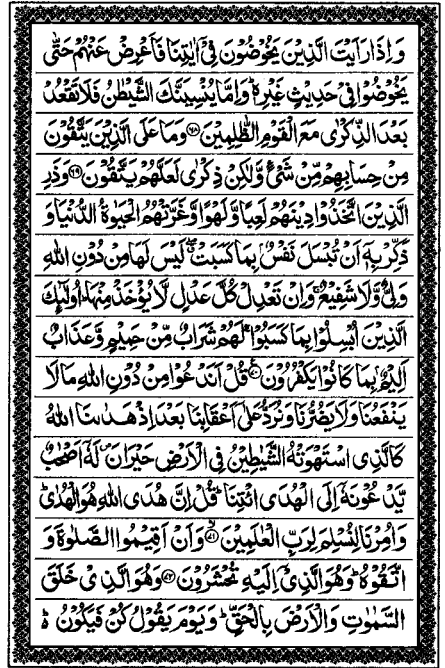 وَاِذَا رَاَيْتَ الَّذِيْنَ يَخُوْضُوْنَ فِيْٓ اٰيٰتِنَا فَاَعْرِضْ عَنْهُمْ حَتّٰى
يَخُوْضُوْا فِيْ حَدِيْثٍ غَيْرِهٖ ؕ وَاِمَّا يُنْسِيَنَّكَ الشَّيْطٰنُ فَلَا تَقْعُدْ
بَعْدَ الذِّكْرٰى مَعَ الْقَوْمِ الظّٰلِمِيْنَ ﴿۶۸﴾ وَمَا عَلَى الَّذِيْنَ يَتَّقُوْنَ
مِنْ حِسَابِهِمْ مِّنْ شَيْءٍ وَّلٰكِنْ ذِكْرٰى لَعَلَّهُمْ يَتَّقُوْنَ ﴿۶۹﴾ وَذَرِ
الَّذِيْنَ اتَّخَذُوْا دِيْنَهُمْ لَعِبًا وَّلَهْوًا وَّغَرَّتْهُمُ الْحَيٰوةُ الدُّنْيَا وَ
ذَكِّرْ بِهٖٓ اَنْ تُبْسَلَ نَفْسٌۢ بِمَا كَسَبَتْ ۖ لَيْسَ لَهَا مِنْ دُوْنِ اللّٰهِ
وَلِيٌّ وَّلَا شَفِيْعٌ ۚ وَاِنْ تَعْدِلْ كُلَّ عَدْلٍ لَّا يُؤْخَذْ مِنْهَا ؕ اُولٰٓئِكَ
الَّذِيْنَ اُبْسِلُوْا بِمَا كَسَبُوْا ۚ لَهُمْ شَرَابٌ مِّنْ حَمِيْمٍ وَّعَذَابٌ
اَلِيْمٌۢ بِمَا كَانُوْا يَكْفُرُوْنَ ﴿۷۰﴾ قُلْ اَنَدْعُوْا مِنْ دُوْنِ اللّٰهِ مَا لَا
يَنْفَعُنَا وَلَا يَضُرُّنَا وَنُرَدُّ عَلٰٓى اَعْقَابِنَا بَعْدَ اِذْ هَدٰىنَا اللّٰهُ
كَالَّذِي اسْتَهْوَتْهُ الشَّيٰطِيْنُ فِي الْاَرْضِ حَيْرَانَ ۪ لَهٗٓ اَصْحٰبٌ
يَّدْعُوْنَهٗٓ اِلَى الْهُدَى ائْتِنَا ؕ قُلْ اِنَّ هُدَى اللّٰهِ هُوَ الْهُدٰى ؕ
وَاُمِرْنَا لِنُسْلِمَ لِرَبِّ الْعٰلَمِيْنَ ﴿۷۱﴾ وَاَنْ اَقِيْمُوا الصَّلٰوةَ وَ
اتَّقُوْهُ ؕ وَهُوَ الَّذِيْٓ اِلَيْهِ تُحْشَرُوْنَ ﴿۷۲﴾ وَهُوَ الَّذِيْ خَلَقَ
السَّمٰوٰتِ وَالْاَرْضَ بِالْحَقِّ ؕ وَيَوْمَ يَقُوْلُ كُنْ فَيَكُوْنُ ؕ